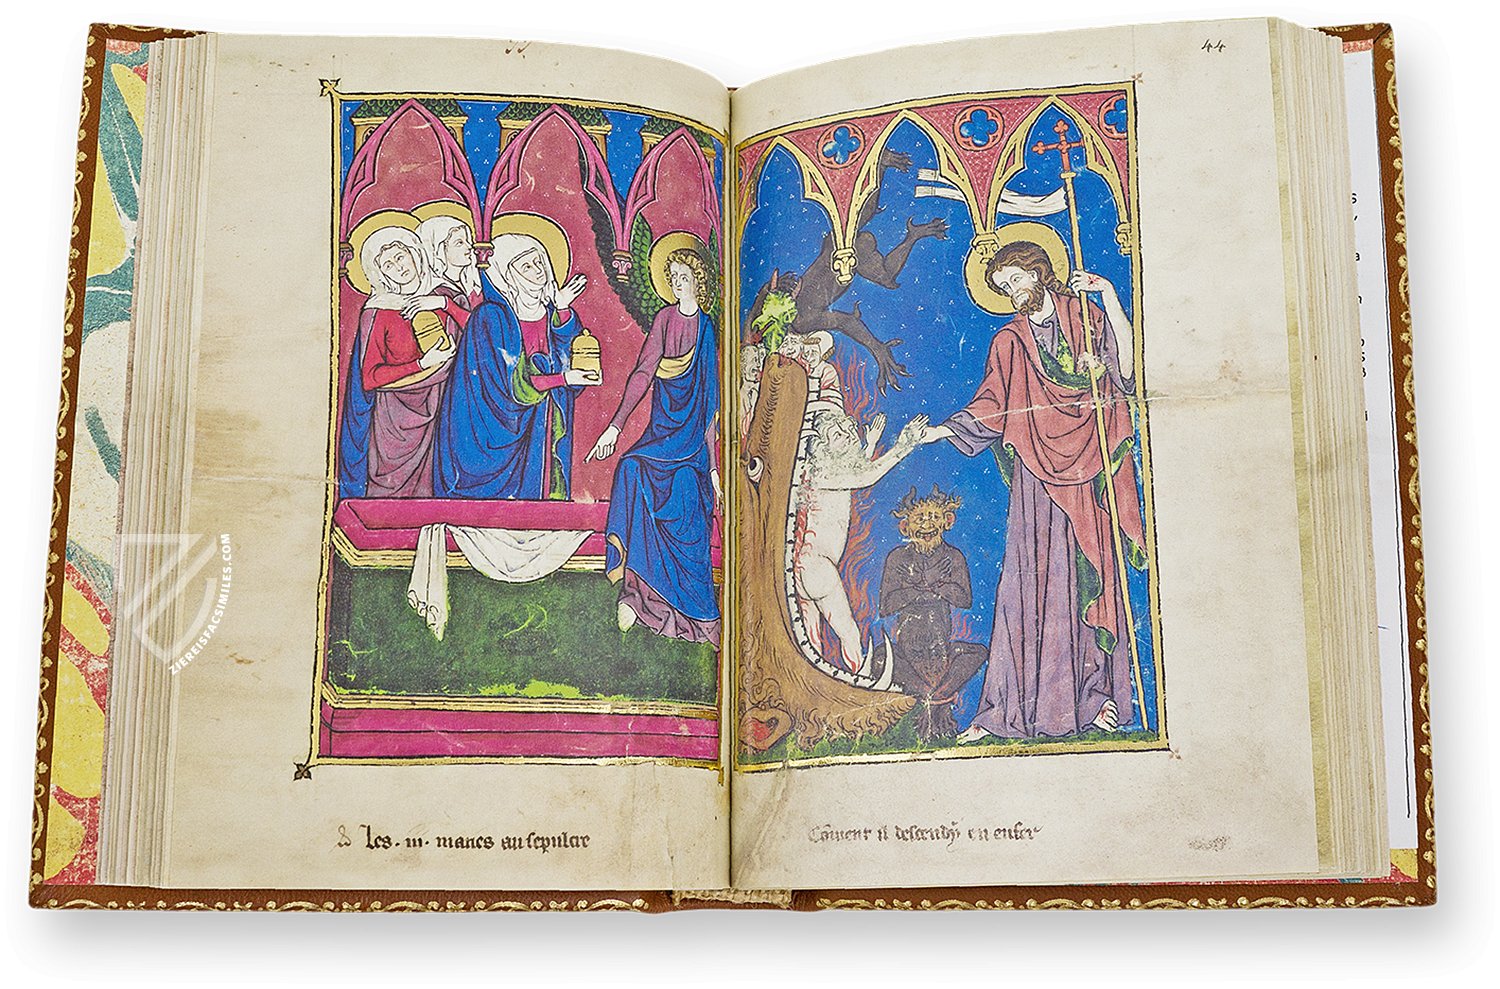 44
& les .iii. maries au sepulcre
Coment il descendy en enfer
ZIEREISFACSIMILES.COM